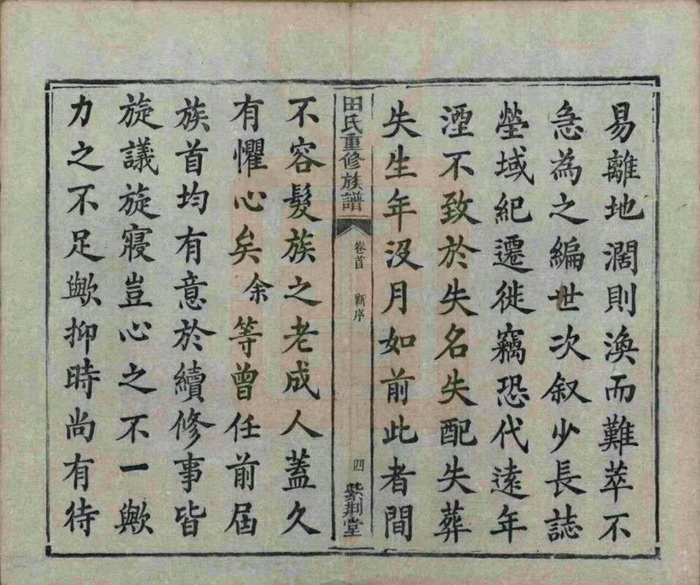 易離地濶則渙而難萃不
急為之編世次叙少長誌
塋域紀遷徙竊恐代遠年
湮不致於失名失配失葬
失生年沒月如前此者間
田氏重修族譜 卷首 新序 四 紫荆堂
不容髮族之老成人蓋久
有懼心矣余等曾任前屆
族首均有意於續修事皆
旋議旋寢豈心之不一歟
力之不足歟抑時尚有待